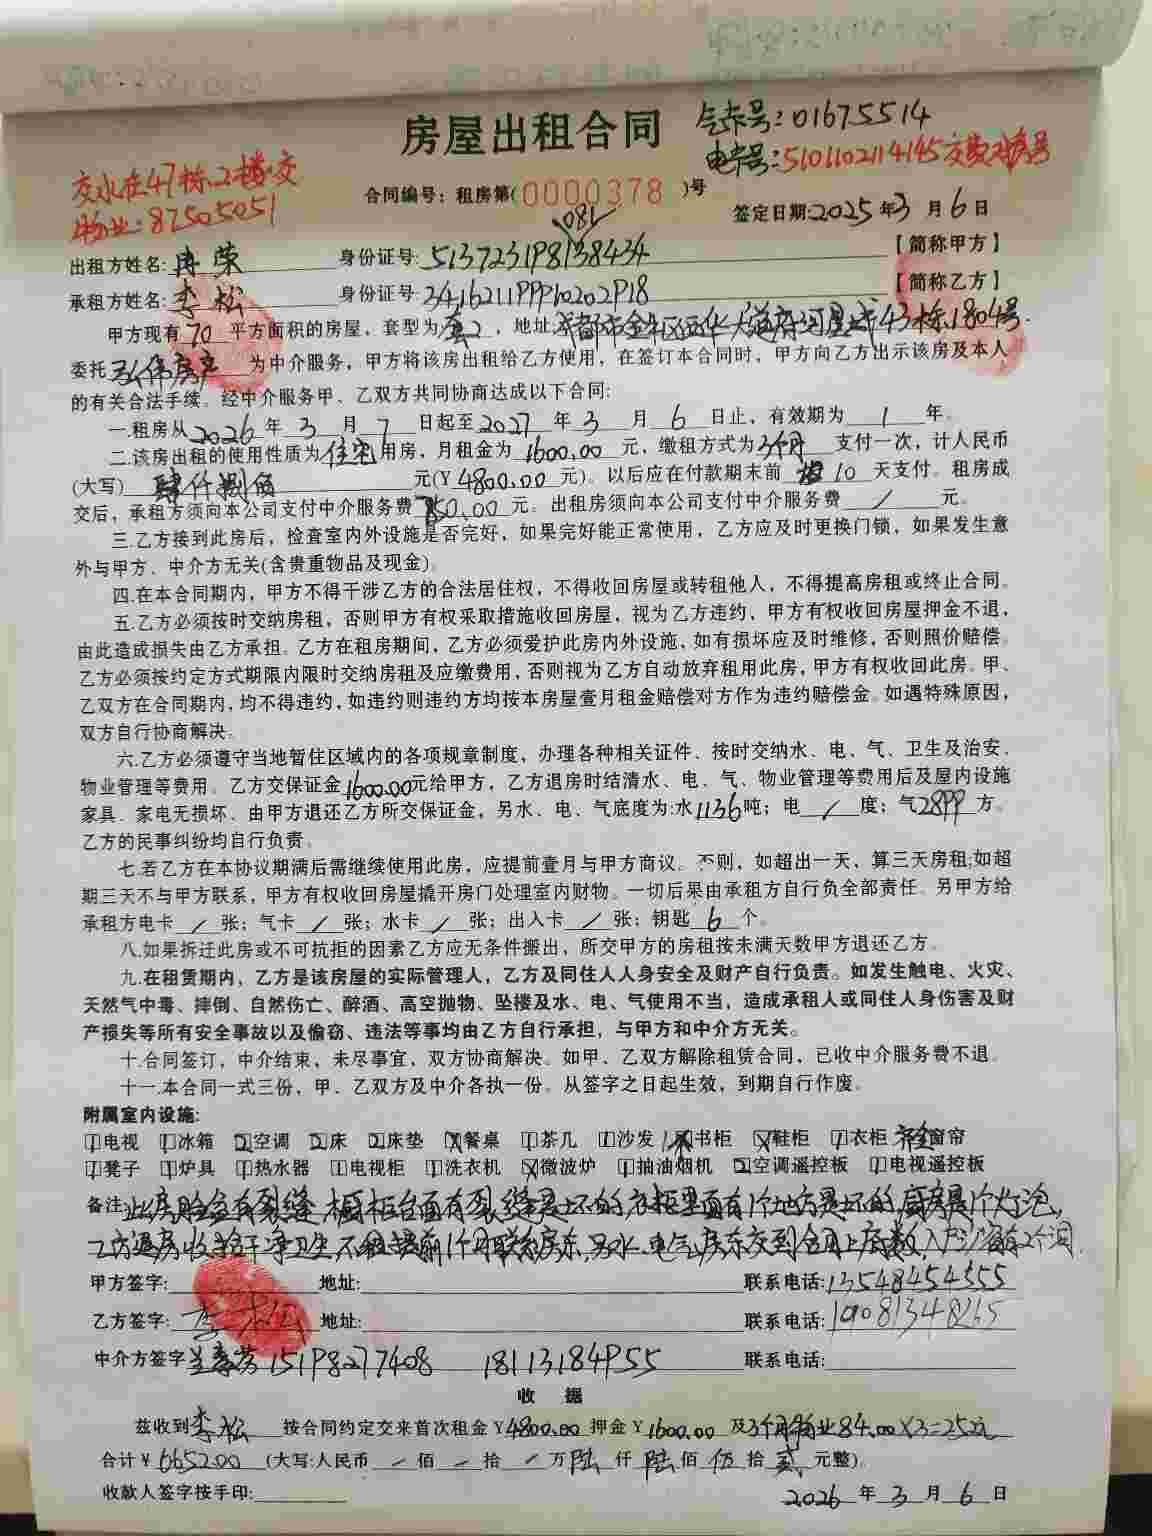 房屋出租合同
气卡号:01675514
电卡号:5101102114145交费对擒号
交水在47栋.2楼交
物业:87505051
合同编号:租房第(0000378)号
签定日期:2025年3月6日
081
出租方姓名:冉荣 身份证号:513723198138434 【简称甲方】
承租方姓名:李松 身份证号:341621199910202918 【简称乙方】
甲方现有70平方面积的房屋、套型为套二,地址成都市金牛区西华大道府河星城43栋1804号.
委托弘伟房产为中介服务,甲方将该房出租给乙方使用,在签订本合同时、甲方向乙方出示该房及本人
的有关合法手续。经中介服务甲、乙双方共同协商达成以下合同:
一.租房从2026年3月7日起至2027年3月6日止,有效期为1年。
二.该房出租的使用性质为住宅用房,月租金为1600.00元,缴租方式为3个月支付一次,计人民币
(大写)肆仟捌佰元(¥4800.00元)。以后应在付款期末前10天支付。租房成
交后,承租方须向本公司支付中介服务费750.00元。出租房须向本公司支付中介服务费/元。
三.乙方接到此房后,检查室内外设施是否完好,如果完好能正常使用,乙方应及时更换门锁,如果发生意
外与甲方、中介方无关(含贵重物品及现金)。
四.在本合同期内,甲方不得干涉乙方的合法居住权,不得收回房屋或转租他人,不得提高房租或终止合同。
五.乙方必须按时交纳房租,否则甲方有权采取措施收回房屋,视为乙方违约,甲方有权收回房屋押金不退,
由此造成损失由乙方承担。乙方在租房期间,乙方必须爱护此房内外设施,如有损坏应及时维修,否则照价赔偿。
乙方必须按约定方式期限内限时交纳房租及应缴费用,否则视为乙方自动放弃租用此房,甲方有权收回此房。甲、
乙双方在合同期内,均不得违约,如违约则违约方均按本房屋壹月租金赔偿对方作为违约赔偿金。如遇特殊原因,
双方自行协商解决。
六.乙方必须遵守当地暂住区域内的各项规章制度,办理各种相关证件、按时交纳水、电、气、卫生及治安、
物业管理等费用。乙方交保证金1600.00元给甲方,乙方退房时结清水、电、气、物业管理等费用后及屋内设施
家具、家电无损坏、由甲方退还乙方所交保证金,另水、电、气底度为:水1136吨;电/度;气2899方。
乙方的民事纠纷均自行负责。
七.若乙方在本协议期满后需继续使用此房,应提前壹月与甲方商议。不则,如超出一天,算三天房租;如超
期三天不与甲方联系,甲方有权收回房屋撬开房门处理室内财物。一切后果由承租方自行负全部责任。另甲方给
承租方电卡/张;气卡/张;水卡/张;出入卡/张;钥匙6个。
八.如果拆迁此房或不可抗拒的因素乙方应无条件搬出,所交甲方的房租按未满天数甲方退还乙方。
九.在租赁期内,乙方是该房屋的实际管理人,乙方及同住人人身安全及财产自行负责。如发生触电、火灾、
天然气中毒、摔倒、自然伤亡、醉酒、高空抛物、坠楼及水、电、气使用不当,造成承租人或同住人身伤害及财
产损失等所有安全事故以及偷窃、违法等事均由乙方自行承担,与甲方和中介方无关。
十.合同签订,中介结束,未尽事宜,双方协商解决。如甲、乙双方解除租赁合同,已收中介服务费不退。
十一.本合同一式三份,甲、乙双方及中介各执一份。从签字之日起生效,到期自行作废。
附属室内设施:
1电视 1冰箱 2空调 2床 2床垫 X餐桌 1茶几 1沙发 1书柜 X鞋柜 1衣柜 齐全窗帘
1凳子 1炉具 1热水器 1电视柜 1洗衣机 X微波炉 1抽油烟机 2空调遥控板 1电视遥控板
备注:此房脸盆有裂缝,橱柜台面有裂缝是坏的,衣柜里面有1个地方是坏的,厨房是1个灯泡,
乙方退房收拾干净卫生,不租提前1个月联系房东,另水、电气房东交到合同上底数,入户沙窗有2个洞.
甲方签字: 地址: 联系电话:13548454555
乙方签字:李松 地址: 联系电话:19081348265
中介方签字 兰春芳15198277408 18113184955 联系电话:
收 据
兹收到李松 按合同约定交来首次租金¥4800.00押金¥1600.00及3个月物业84.00X3=252元
合计¥6652.00(大写:人民币/佰/拾/万陆仟陆佰伍拾贰元整)。
收款人签字按手印: 2026年3月6日